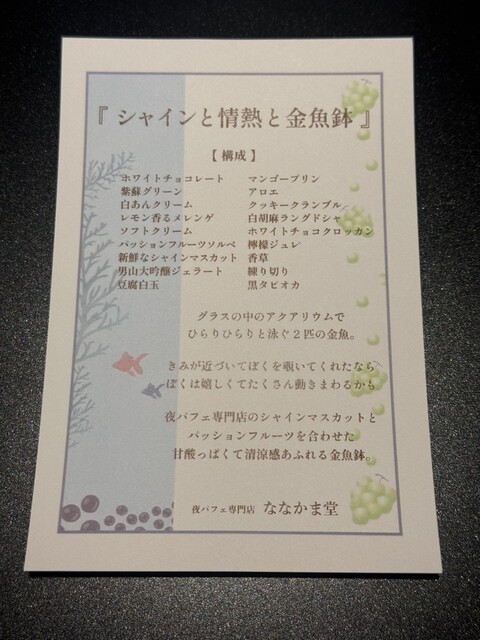 『 シャインと情熱と金魚鉢 』
【 構成 】
ホワイトチョコレート マンゴープリン
紫蘇グリーン アロエ
白あんクリーム クッキークランブル
レモン香るメレンゲ 白胡麻ラングドシャ
ソフトクリーム ホワイトチョコクロッカン
パッションフルーツソルベ 檸檬ジュレ
新鮮なシャインマスカット 香草
男山大吟醸ジェラート 練り切り
豆腐白玉 黒タピオカ
グラスの中のアクアリウムで
ひらりひらりと泳ぐ２匹の金魚。
きみが近づいてぼくを覗いてくれたなら
ぼくは嬉しくてたくさん動きまわるかも
夜パフェ専門店のシャインマスカットと
パッションフルーツを合わせた
甘酸っぱくて清涼感あふれる金魚鉢。
夜パフェ専門店 ななかま堂